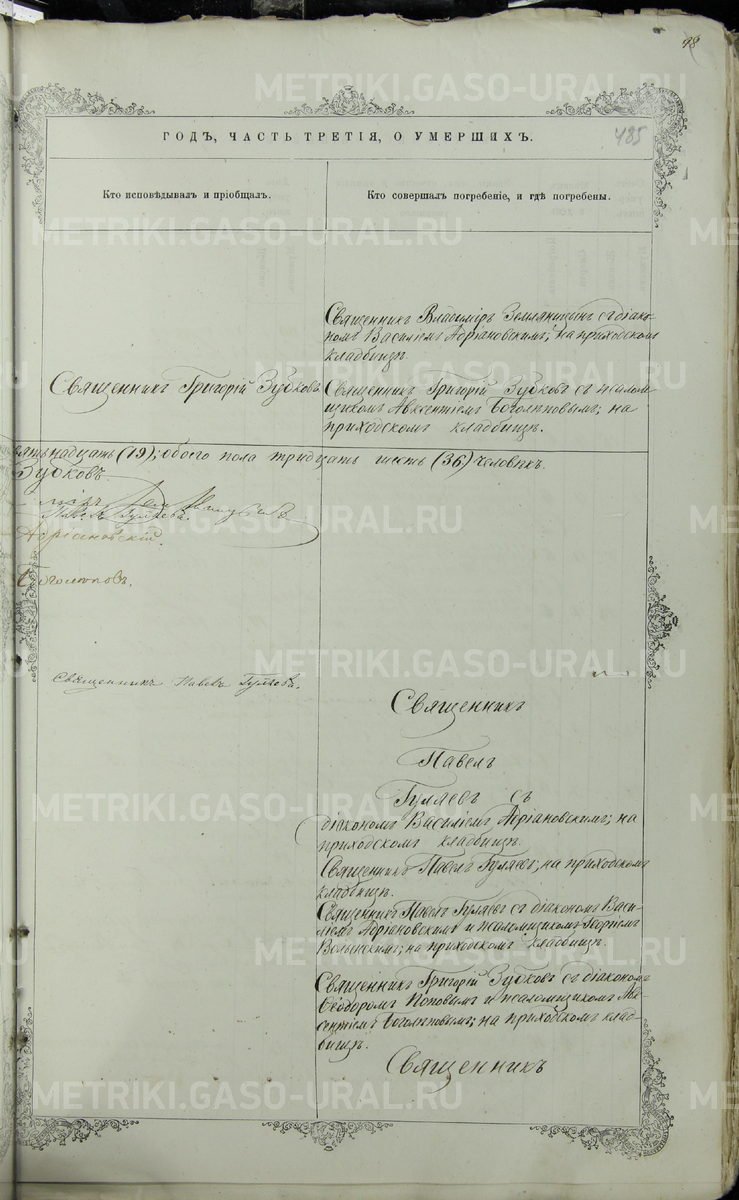 98
485
ГОДЪ, ЧАСТЬ ТРЕТІЯ, О УМЕРШИХЪ.
Кто исповѣдывалъ и пріобщалъ.
Кто совершалъ погребеніе, и гдѣ погребены.
Священникъ Владиміръ Земляницынъ съ діако-
номъ Василіемъ Адріановскимъ; на приходскомъ
кладбищѣ.
Священникъ Григорій Зубковъ.
Священникъ Григорій Зубковъ съ псалом-
щикомъ Авксентіемъ Боголѣповымъ; на
приходскомъ кладбищѣ.
надцать (19); обоего пола тридцать шесть (36) человѣкъ.
Зубковъ.
Павелъ Гуляевъ.
Адріановскій.
Боголѣповъ.
Священникъ Павелъ Гуляевъ.
Священникъ
Павелъ
Гуляевъ съ
діакономъ Василіемъ Адріановскимъ; на
приходскомъ кладбищѣ.
Священникъ Павелъ Гуляевъ; на приходскомъ
кладбищѣ.
Священникъ Павелъ Гуляевъ съ діакономъ Васи-
ліемъ Адріановскимъ и псаломщикомъ Георгіемъ
Волынскимъ; на приходскомъ кладбищѣ.
Священникъ Григорій Зубковъ съ діакономъ
Ѳеодоромъ Поповымъ и псаломщикомъ Авк-
сентіемъ Боголѣповымъ; на приходскомъ клад-
бищѣ.
Священникъ
METRIKI.GASO-URAL.RU